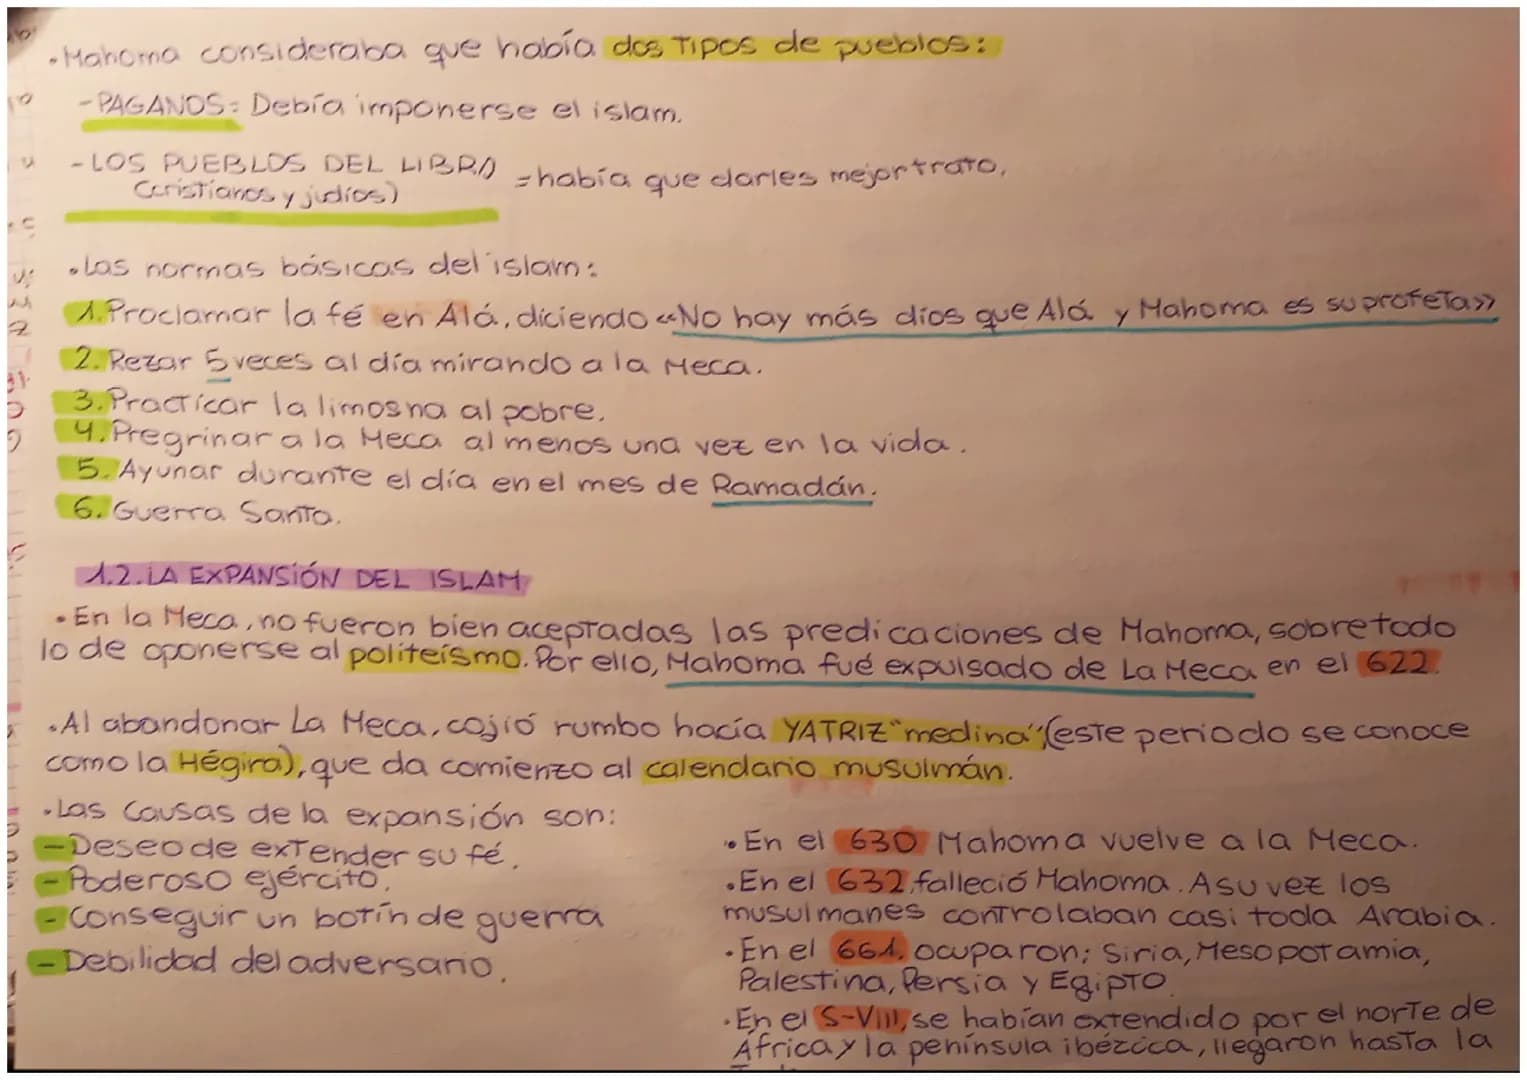 • Mahoma consideraba que había dos tipos de pueblos:
- PAGANOS= Debía imponerse el islam.
- LOS PUEBLOS DEL LIBRO = había que darles mejor trato.
(cristianos y judíos)
• Las normas básicas del islam:
1. Proclamar la fé en Alá, diciendo «No hay más dios que Alá y Mahoma es su profeta»
2. Rezar 5 veces al día mirando a la Meca.
3. Practicar la limosna al pobre.
4. Pregrinar a la Meca al menos una vez en la vida.
5. Ayunar durante el día en el mes de Ramadán.
6. Guerra Santa.
1.2. LA EXPANSIÓN DEL ISLAM
• En la Meca, no fueron bien aceptadas las predicaciones de Mahoma, sobre todo
lo de oponerse al politeísmo. Por ello, Mahoma fué expulsado de La Meca en el 622.
• Al abandonar La Meca, cojió rumbo hacía YATRIZ "medina" (este periodo se conoce
como la Hégira), que da comienzo al calendario musulmán.
• Las causas de la expansión son:
- Deseo de extender su fé.
- Poderoso ejército.
- Conseguir un botín de guerra
- Debilidad del adversario.
• En el 630 Mahoma vuelve a la Meca.
• En el 632, falleció Mahoma. A su vez los
musulmanes controlaban casi toda Arabia.
• En el 661, ocuparon; Siria, Mesopotamia,
Palestina, Persia y Egipto.
• En el S-VIII, se habían extendido por el norte de
África y la península ibérica, llegaron hasta la